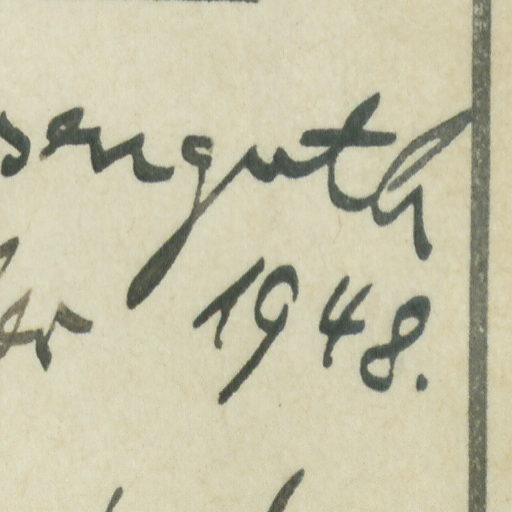 senguth
er 1948.